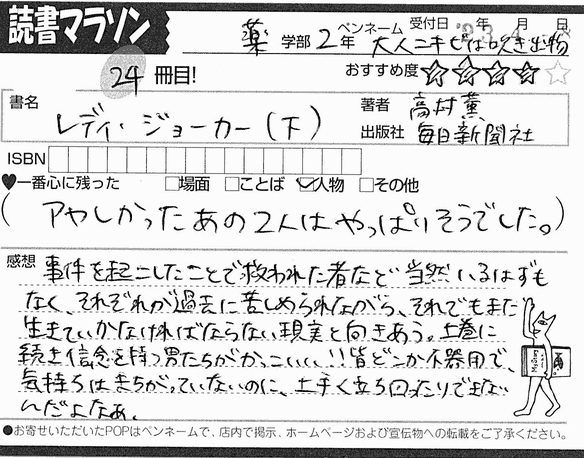 読書マラソン
薬 学部 2年
ペンネーム 大人ニキビは吹き出物
受付日 年 月 日
24 冊目!
おすすめ度 ☆☆☆☆☆
書名 レディ・ジョーカー(下)
著者 高村薫
出版社 毎日新聞社
ISBN
♥一番心に残った □場面 □ことば ☑人物 □その他
(アヤしかったあの2人はやっぱりそうでした。)
感想 事件を起こしたことで救われた者など当然いるはずも
なく、それぞれが過去に苦しめられながら、それでもまた
生きていかなければならない現実と向きあう。上巻に
続き信念を持つ男たちがかっこいい!!皆どこか不器用で、
気持ちはまちがっていないのに、上手く立ち回ったりできない
んだよなぁ。
●お寄せいただいたPOPはペンネームで、店内で掲示、ホームページおよび宣伝物への転載をご了承ください。